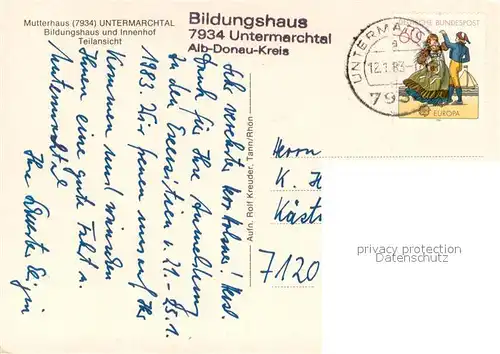 Mutterhaus (7934) UNTERMARCHTAL
Bildungshaus und Innenhof
Teilansicht
Bildungshaus
7934 Untermarchtal
Alb-Donau-Kreis
DEUTSCHE BUNDESPOST
60
EUROPA
UNTERMARCHT
a
12.1.83
793
Sehr verehrter Herr! Herzl.
Dank für Ihre Anmeldung
zu den Exerzitien v. 21.-25.1.
1983. Wir freuen uns auf Ihr
Kommen und wünschen
Ihnen eine gute Fahrt n.
Untermarchtal
Ihre Schwester
Aufn. Rolf Kreuder, Tann/Rhön
Herrn
K. H
Käst
7120
privacy protection
Datenschutz